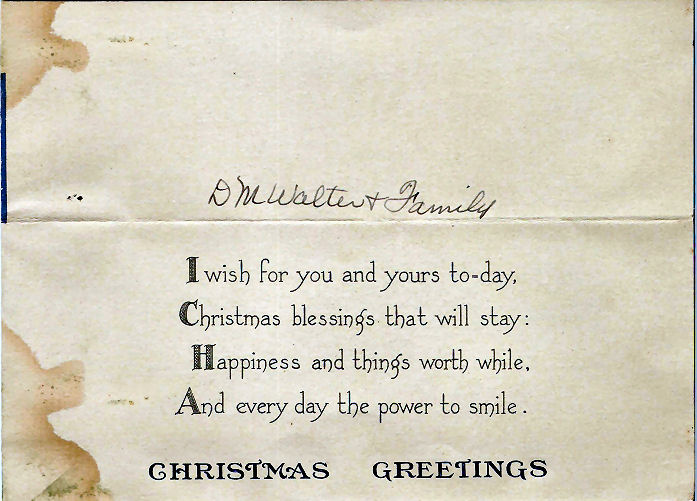 D M Walter & Family
I wish for you and yours to-day,
Christmas blessings that will stay:
Happiness and things worth while,
And every day the power to smile.
CHRISTMAS GREETINGS